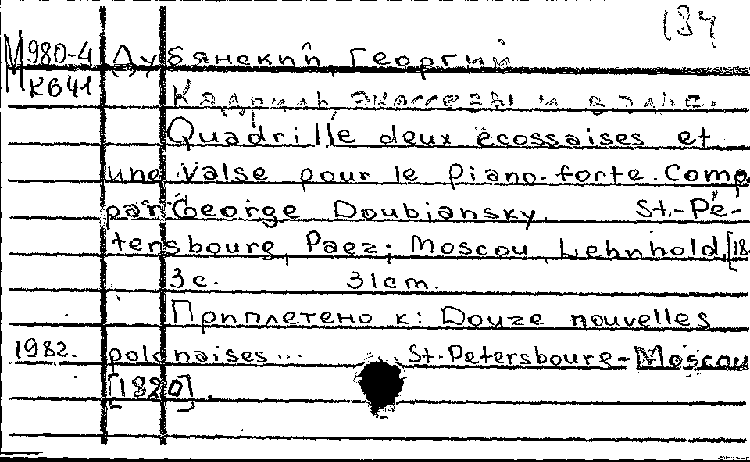 134
М980-4 Дубянский, Георгий
КВ41
Кадриль, экоссезы и вальс.
Quadrille deux écossaises et
une valse pour le piano-forte. Comp
par George Doubiansky. St.-Pé-
tersbourg, Paez; Moscou, Lehnhold, [18
3 с. 31 cm.
Приплетено к: Douze nouvelles
1982. polonaises... St.-Petersbourg-Moscou
[1820].